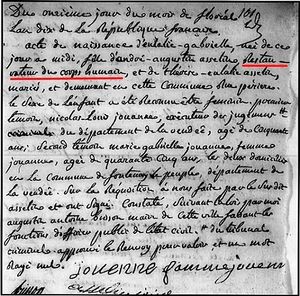 Du onzieme jour du mois de floréal
L'an dix de la République française
acte de naissance d'eulalie-gabrielle, née de ce
jour a midi, fille d'andré-augustin asselin Restau
rateur du corps humain, et de Thérese-eulalie asselin
mariés, et demeurant en cette Commune
le sexe de l'enfant a été Reconnu être feminin, premier
témoin, nicolas Louis jouanne, executeur des jugements
criminels du département de la vendée, agé de cinquante
ans, Second témoin marie gabrielle jouanne, femme
jouanne, agée de quarante cinq ans, les deux domiciliés
en la Commune de fontenay le peuple, département de
la vendée. Sur la Requisition à nous faite par le Susdit
asselin et ont Signé. Constaté, Suivant la loi par moi
augustin antoine maire de cette ville faisant les
fonctions d'officier public de l'état civil. du tribunal
criminel approuvé le Renvoy pour valoir et un mot
Rayé nul.
jouenne femme jouenn